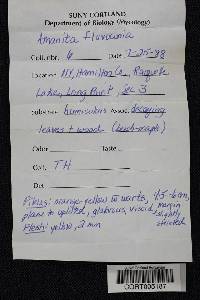 SUNY CORTLAND
Department of Biology (Mycology)
Amanita flavoconia
Coll. nbr. 6 Date 7-25-98
Location NY, Hamilton Co., Raquette
Lake, Long Point, Sec 3
Substrate humicolous Assoc. decaying
leaves + wood (beech-maple)
Odor Taste
Coll. TH
Det
Pileus: orange-yellow w/ warts, 4.5-6cm,
plane to uplifted, glabrous, viscid, margin
slightly
striated
Flesh: yellow, 2 mm
CORT005187